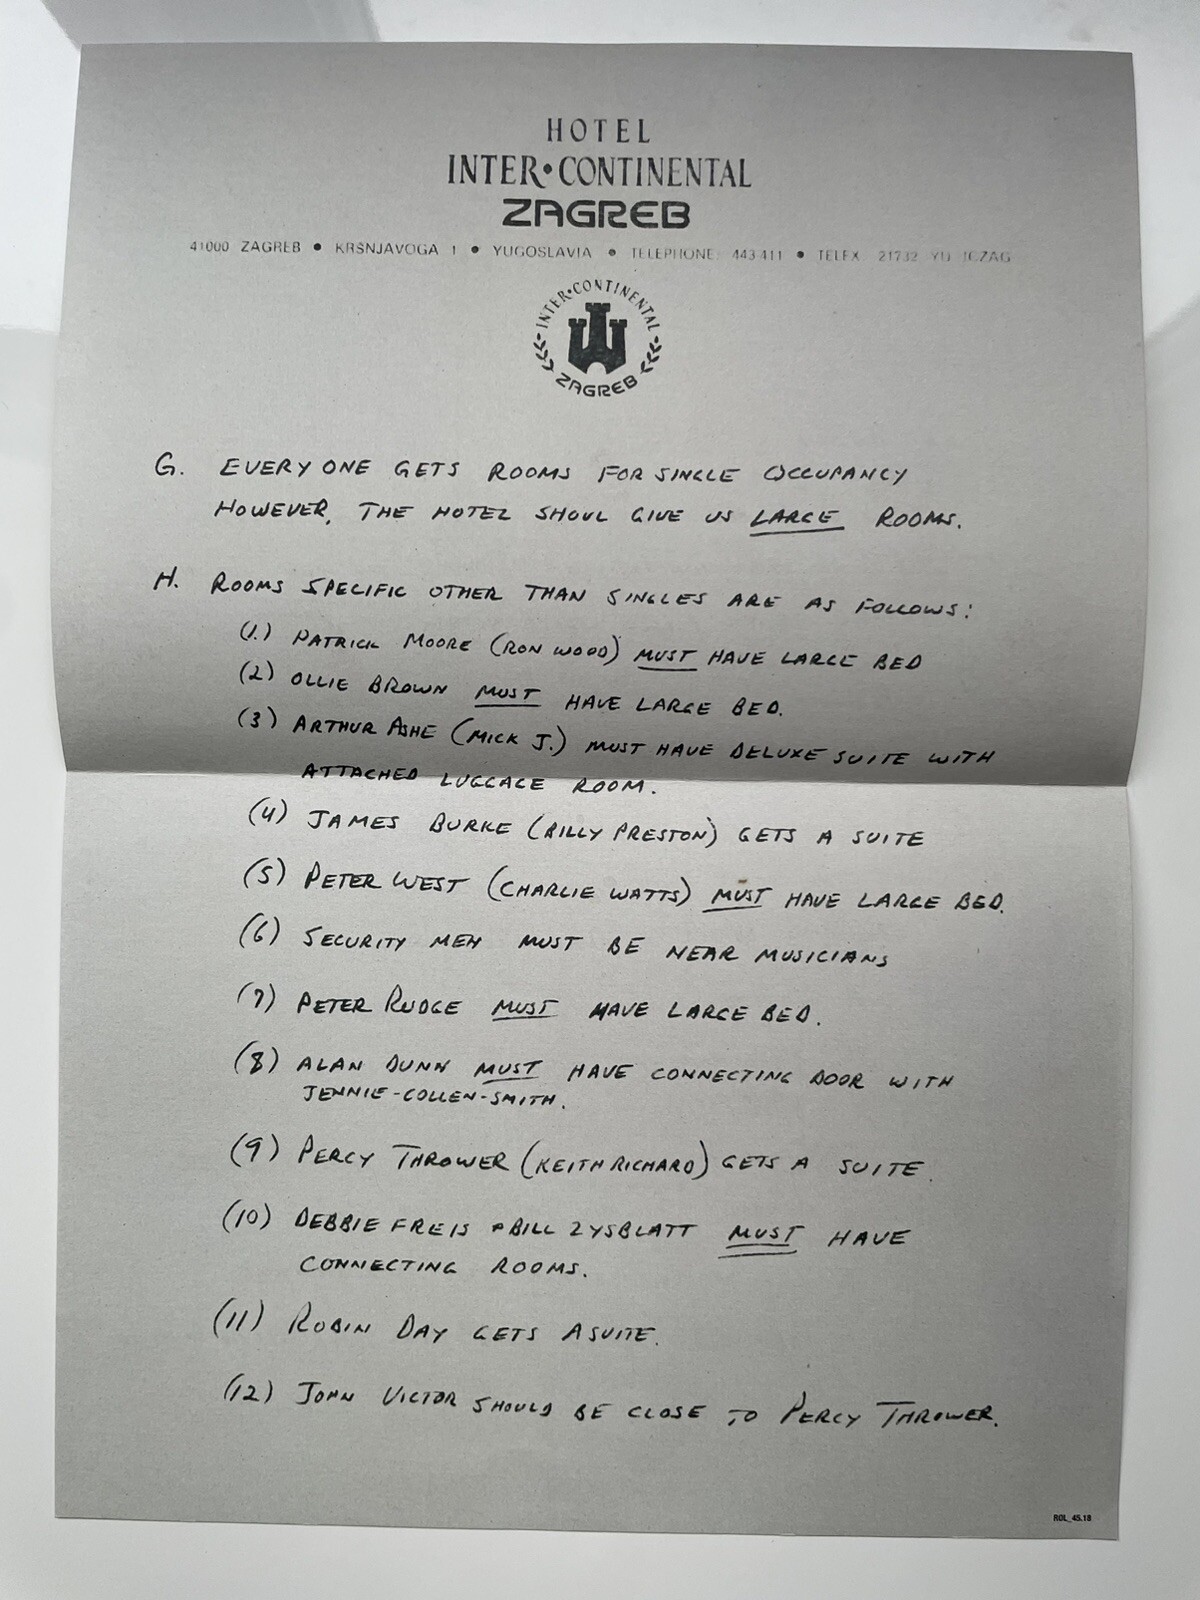 HOTEL
INTER•CONTINENTAL
ZAGREB
41000 ZAGREB • KRSNJAVOGA 1 • YUGOSLAVIA • TELEPHONE: 443-411 • TELEX: 21732 YU ICZAG
INTER•CONTINENTAL
ZAGREB
G. EVERYONE GETS ROOMS FOR SINGLE OCCUPANCY
HOWEVER, THE HOTEL SHOUL GIVE US LARGE ROOMS.
H. ROOMS SPECIFIC OTHER THAN SINGLES ARE AS FOLLOWS:
(1.) PATRICK MOORE (RON WOOD) MUST HAVE LARGE BED
(2) OLLIE BROWN MUST HAVE LARGE BED.
(3) ARTHUR ASHE (MICK J.) MUST HAVE DELUXE SUITE WITH
ATTACHED LUGGAGE ROOM.
(4) JAMES BURKE (BILLY PRESTON) GETS A SUITE
(5) PETER WEST (CHARLIE WATTS) MUST HAVE LARGE BED.
(6) SECURITY MEN MUST BE NEAR MUSICIANS
(7) PETER RUDGE MUST HAVE LARGE BED.
(8) ALAN DUNN MUST HAVE CONNECTING DOOR WITH
JENNIE-COLLEN-SMITH.
(9) PERCY THROWER (KEITH RICHARD) GETS A SUITE.
(10) DEBBIE FREIS + BILL ZYSBLATT MUST HAVE
CONNECTING ROOMS.
(11) ROBIN DAY GETS A SUITE.
(12) JOHN VICTOR SHOULD BE CLOSE TO PERCY THROWER.
ROL_45.18